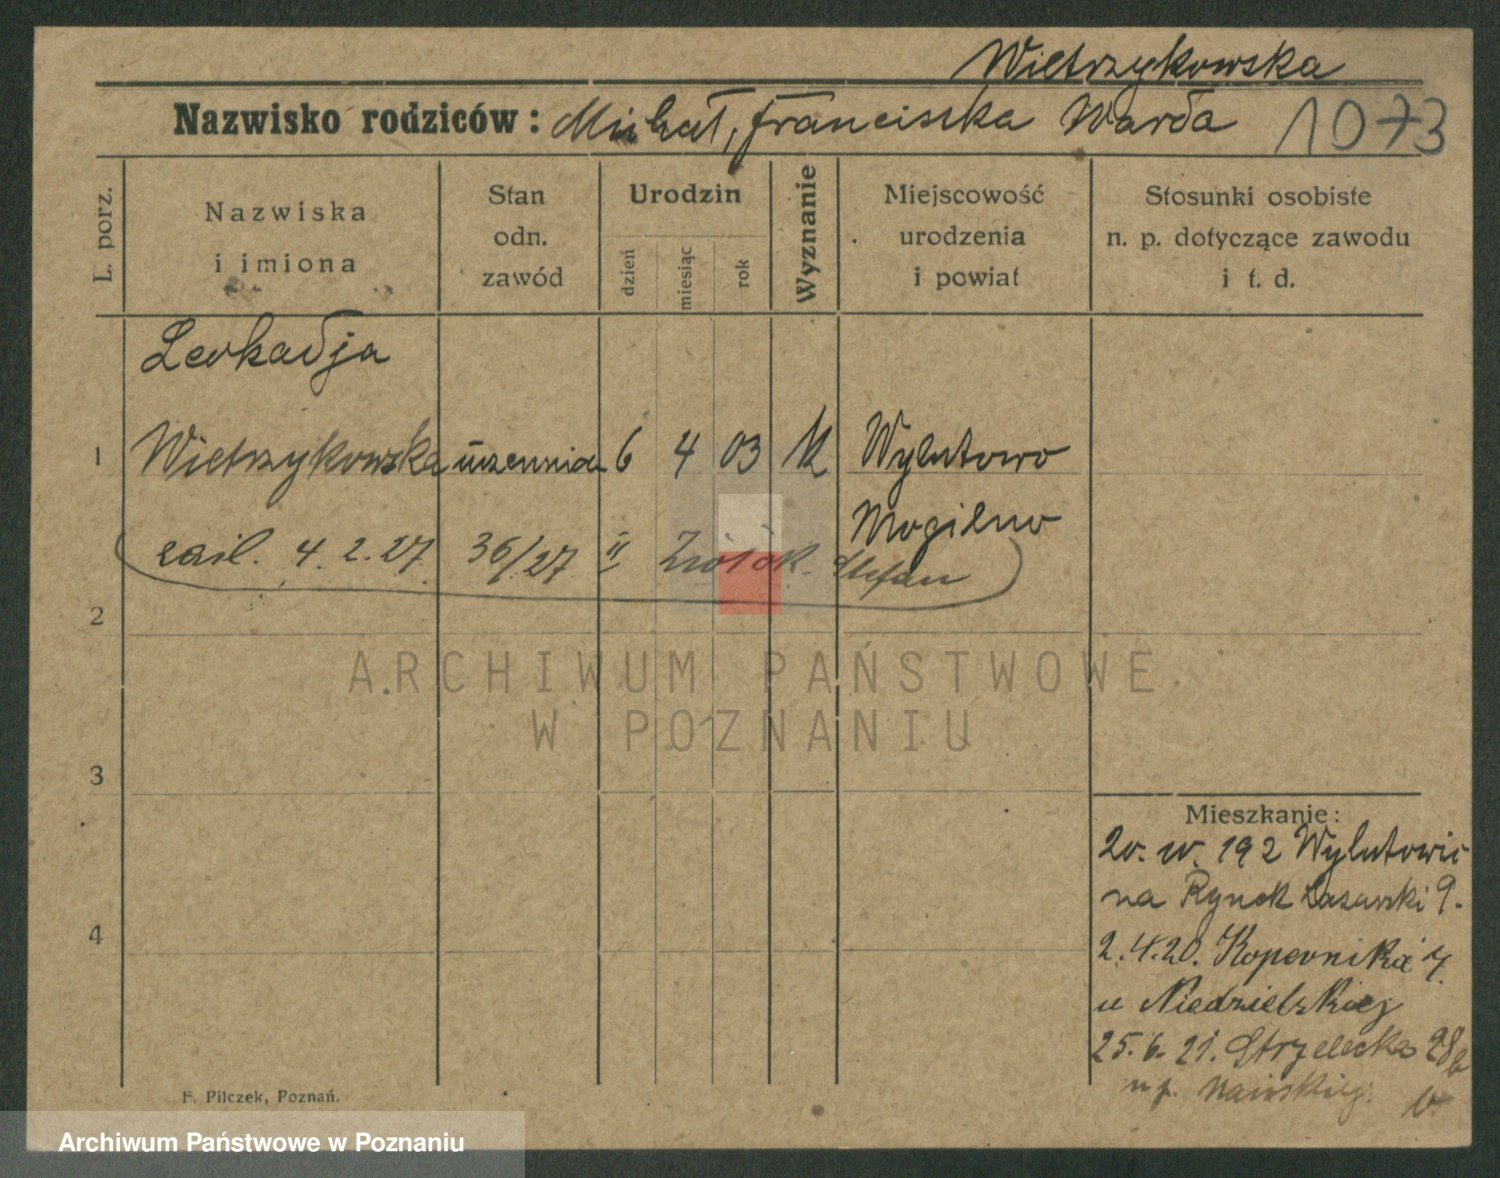 Wietrzykowska
Nazwisko rodziców: Michał, Franciszka Warda 1073
L. porz.
Nazwiska i imiona
Stan odn. zawód
Urodzin
dzień miesiąc rok
Wyznanie
Miejscowość urodzenia i powiat
Stosunki osobiste n. p. dotyczące zawodu i t. d.
Leokadja
1 Wietrzykowska uczennica 6 4 03 K Wylatowo
Mogilno
4. 2. 27 36/27 II Ziółk. Stefan
2
ARCHIWUM PAŃSTWOWE
W POZNANIU
3
Mieszkanie:
20. IV. 192 Wylatowie
na Rynek Łazarski 9.
4
2.4.20. Kopernika 7
u Niedzielskiej
25.6.21. Strzelecka 28b
F. Pilczek, Poznań.
Archiwum Państwowe w Poznaniu